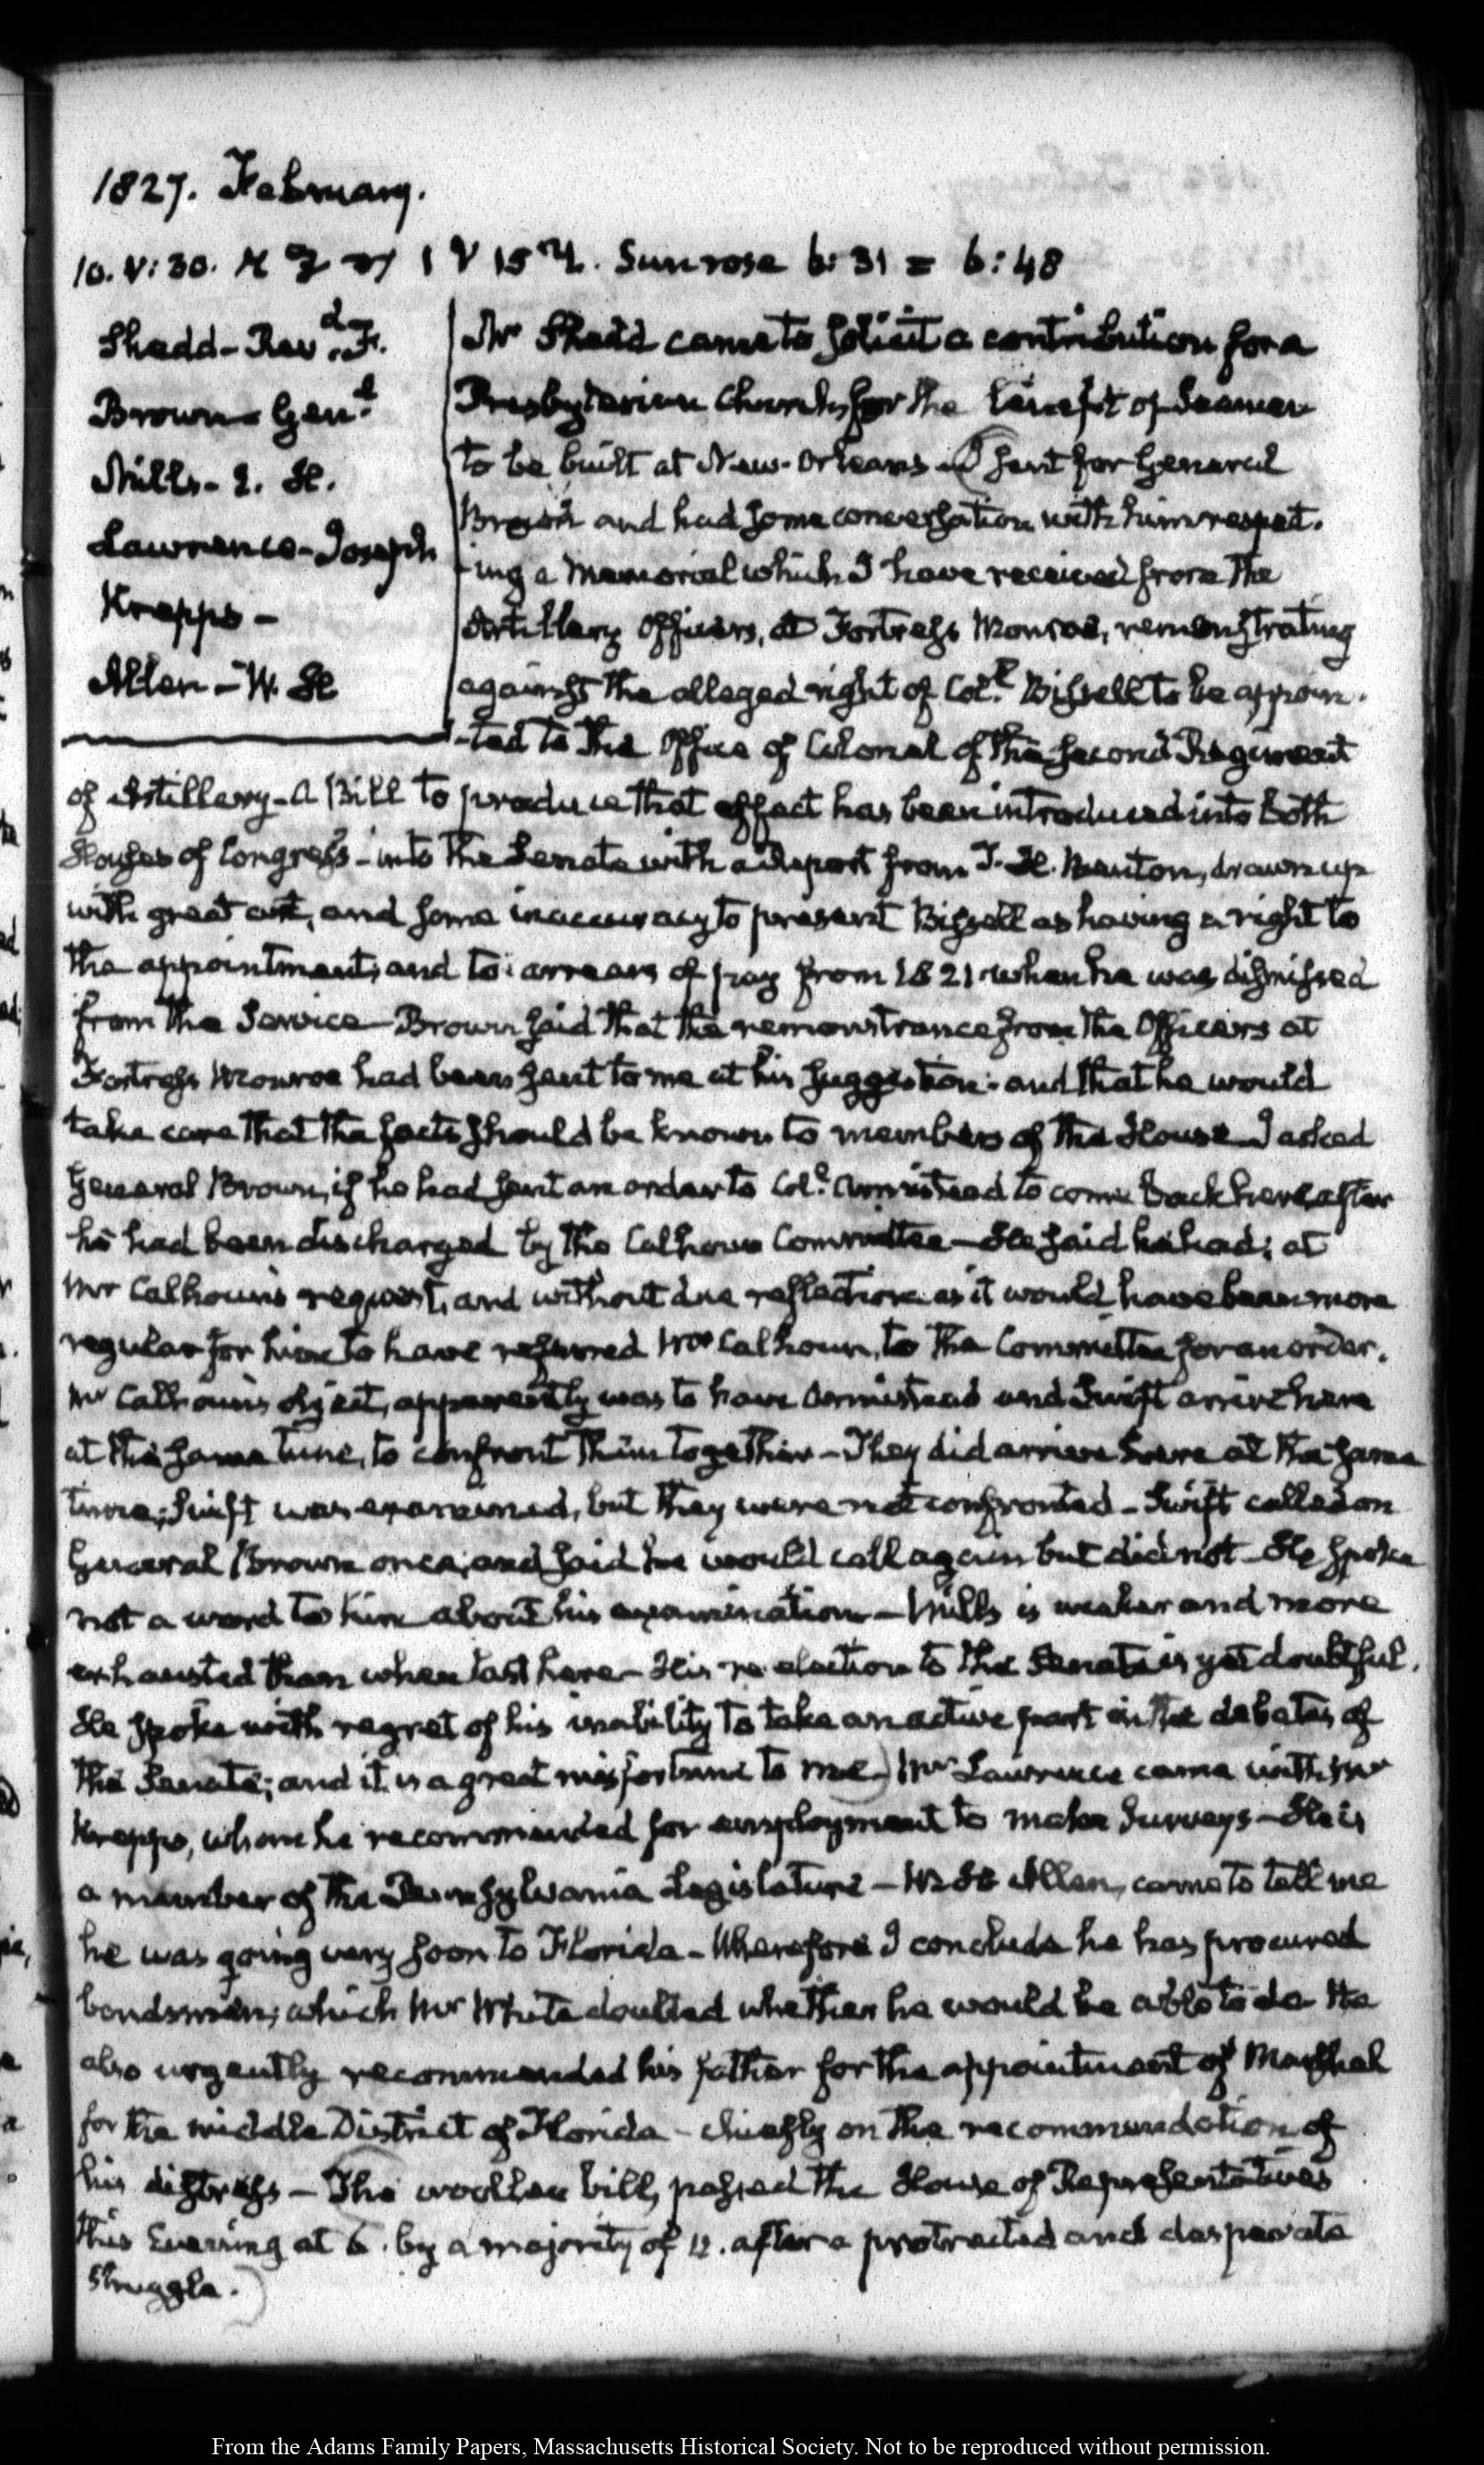 1827. February.
10. V:30. Sun rose 6:31 = 6:48
Shadd - Revd. F.
Brown - Genl.
Mills - E. H.
Lawrence - Joseph
Krepps -
Allen - W. H
Mr Shadd came to solicit a contribution for a
Presbyterian Church, for the benefit of Seamen
to be built at New-Orleans - I sent for General
Brown and had some conversation with him respect-
-ing a Memorial which I have received from the
Artillery Officers, at Fortress Monroe, remonstrating
against the alleged right of Coll. Bissell to be appoin-
-ted to the Office of Colonel of the second Regiment
of Artillery - A Bill to produce that effect has been introduced into both
Houses of Congress - into the Senate with a Report from T. H. Benton, drawn up
with great art, and some inaccuracy to present Bissell as having a right to
the appointment, and to arrears of pay from 1821 when he was dismissed
from the Service - Brown said that the remonstrance from the Officers at
Fortress Monroe had been sent to me at his suggestion; and that he would
take care that the facts should be known to members of the House - I asked
General Brown, if he had sent an order to Col. Armistead to come back here after
he had been discharged by the Calhoun Committee - He said he had; at
Mr Calhoun's request, and without due reflection as it would have been more
regular for him to have referred Mr Calhoun, to the Committee for an order.
Mr Calhoun's object, apparently was to have Armistead and Swift arrive here
at the same time, to confront them together - They did arrive here at the same
time; Swift was examined, but they were not confronted - Swift called on
General Brown once, and said he would call again but did not - He spoke
not a word to him about his examination - Mills is weaker and more
exhausted than when last here - His re-election to the Senate is yet doubtful.
He spoke with regret of his inability to take an active part in the debates of
the Senate; and it is a great misfortune to me) Mr Lawrence came with Mr
Krepps, whom he recommended for employment to make Surveys - He is
a member of the Pennsylvania Legislature - W. H. Allen, came to tell me
he was going very soon to Florida - Wherefore I conclude he has procured
bondsmen; which Mr White doubted whether he would be able to do He
also urgently recommended his father for the appointment of Marshal
for the middle District of Florida - chiefly on the recommendation of
his distress - The woollen bill, passed the House of Representatives
this Evening at 6. by a majority of 12. after a protracted and desperate
struggle.)
From the Adams Family Papers, Massachusetts Historical Society. Not to be reproduced without permission.